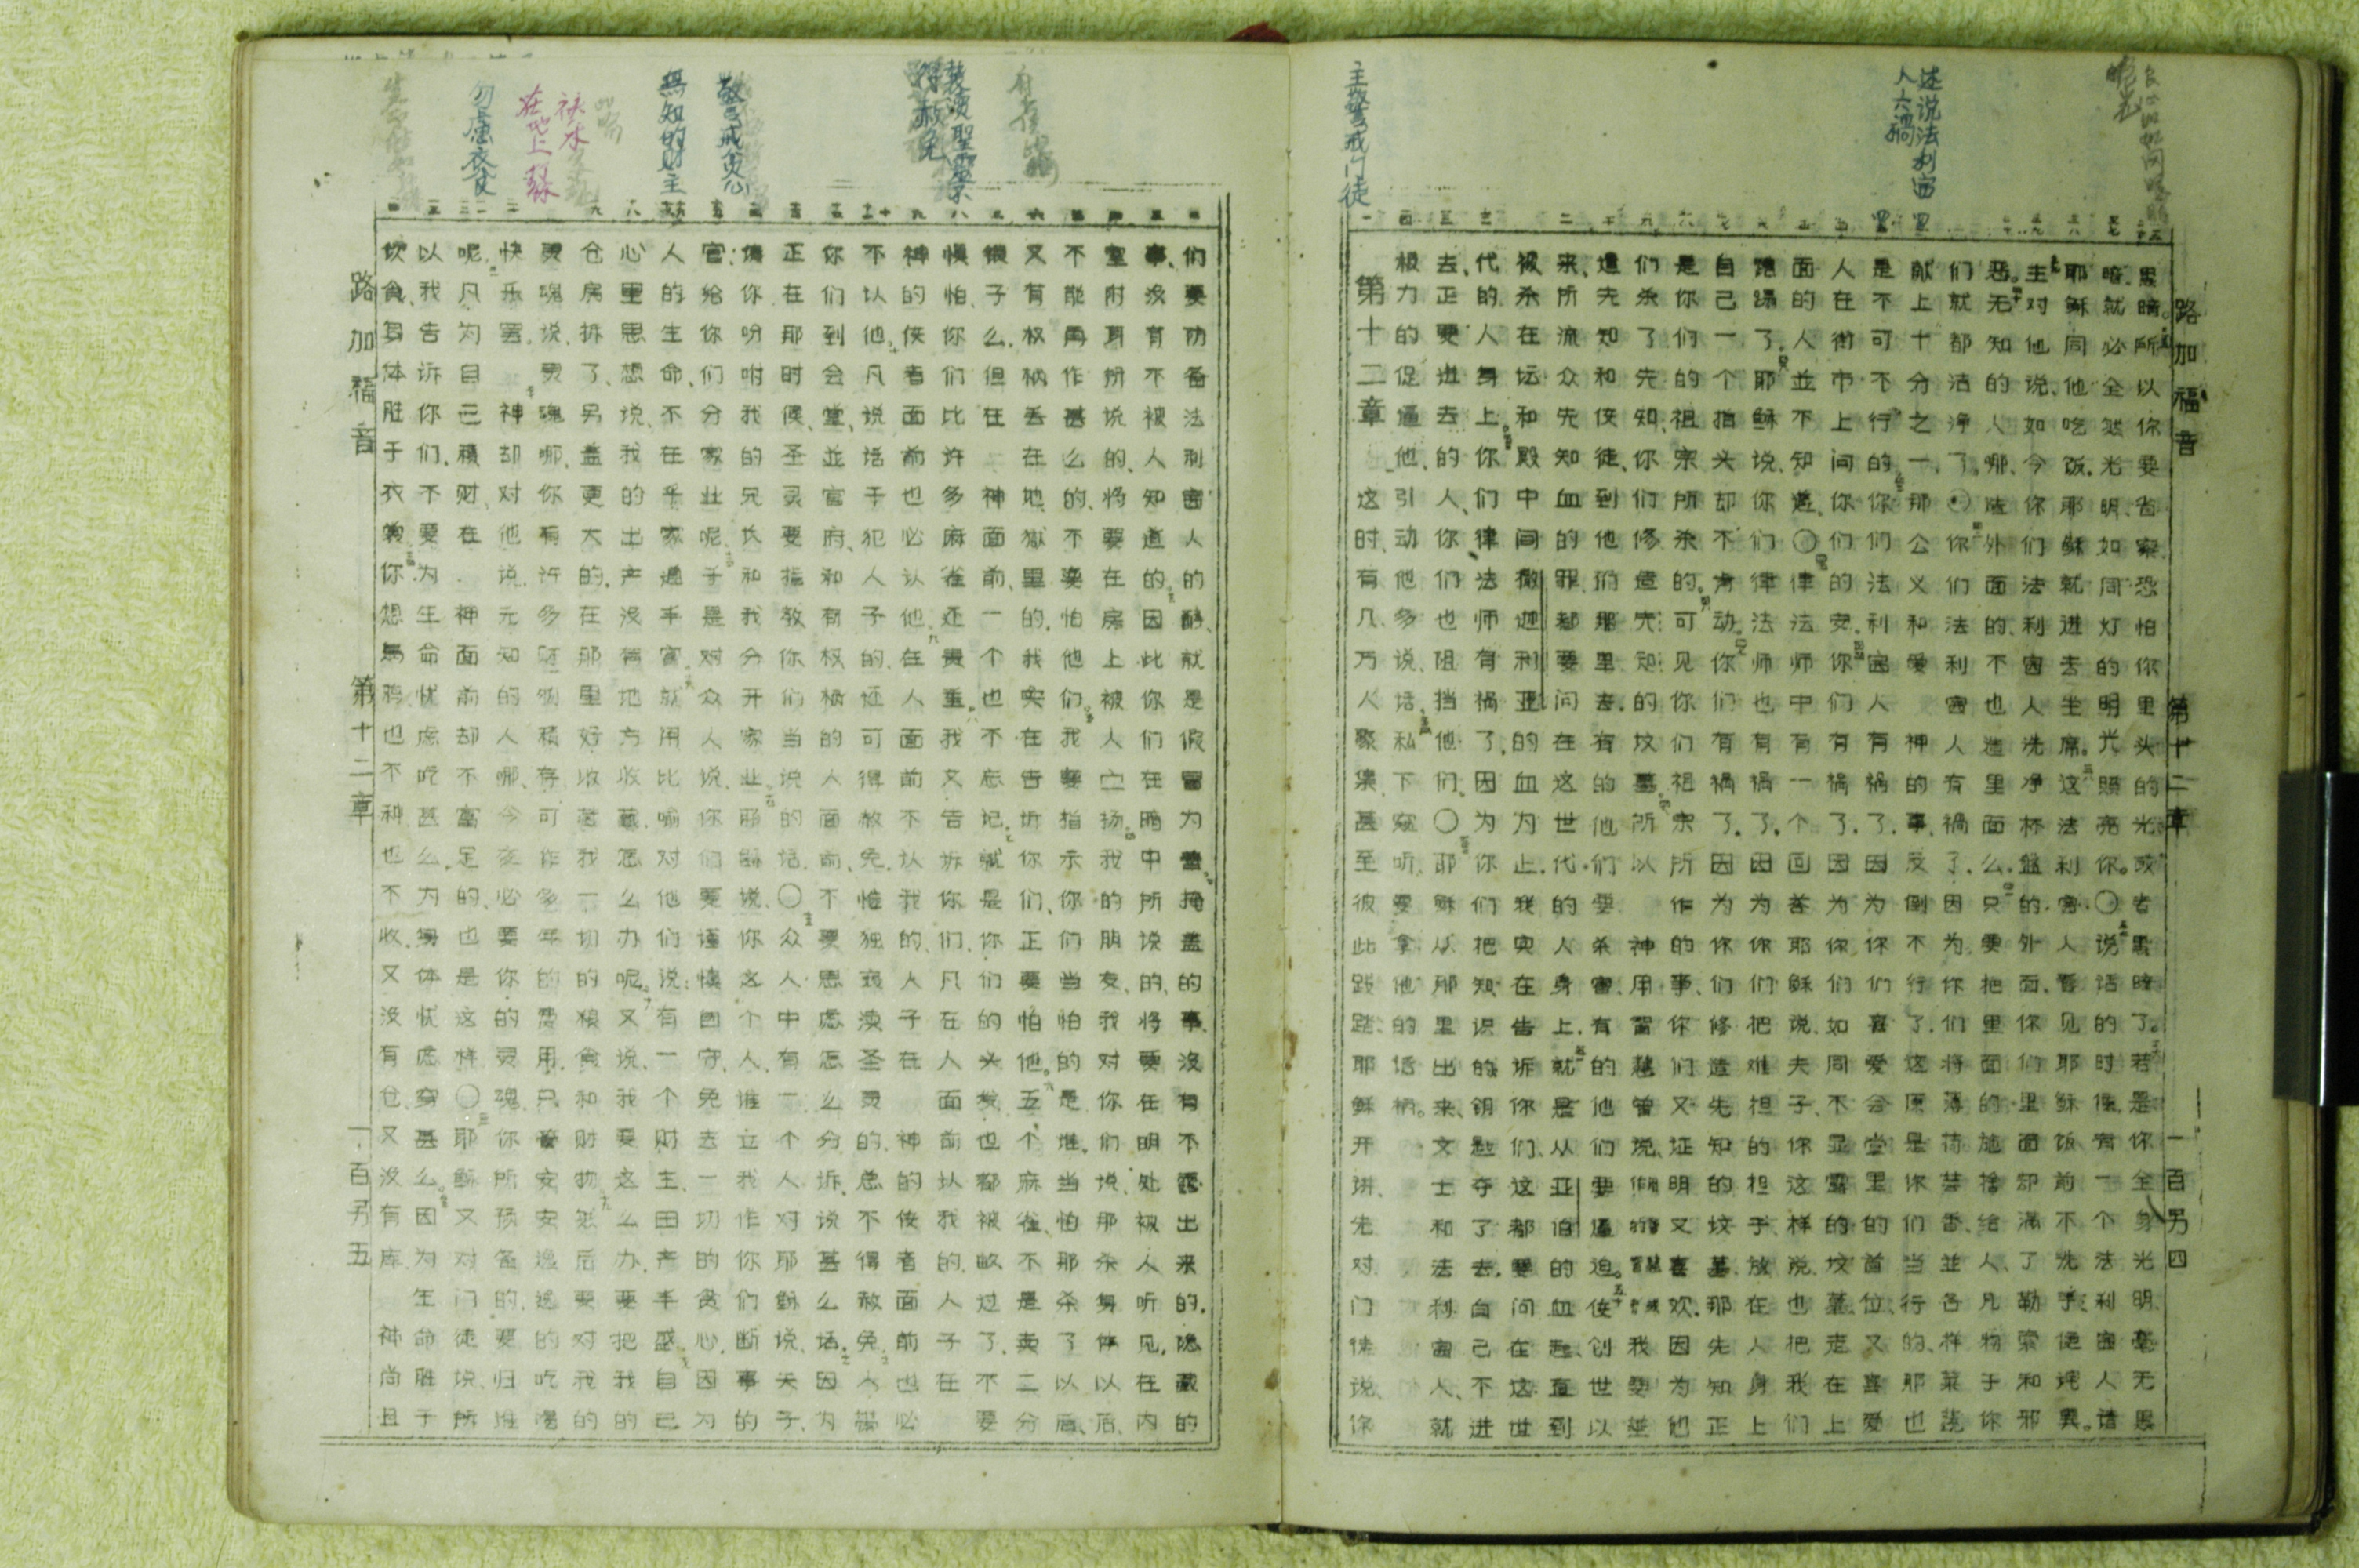 述说法利赛
人六禍
主警戒门徒
路加福音 第十一章 一百另四
黑暗。所以你要省察、恐怕你里头的光或者黑暗了。若是你全身光明、毫无黑
暗、就必全然光明、如同灯的明光照亮你。〇说话的时候、有一个法利赛人请
耶稣同他吃饭、耶稣就进去坐席。这法利赛人看见耶稣饭前不洗手便诧异。
主对他说、如今你们法利赛人洗净杯盘的外面、你们里面却满了勒索和邪
恶。无知的人哪、造外面的、不也造里面么。只要把里面的施捨给人、凡物于你
们就都洁净了。〇你们法利赛人有祸了、因为你们将薄荷芸香、並各样菜蔬、
献上十分之一、那公义和爱神的事、反倒不行了、这原是你们当行的、那也
是不可不行的。你们法利赛人有祸了、因为你们喜爱会堂里的首位、又喜爱
人在街市上问你们的安。你们有祸了、因为你们如同不显露的坟墓、走在上
面的人並不知道。〇律法师中有一个回答耶稣说、夫子、你这样说也把我们
蹧蹋了。耶稣说、你们律法师也有祸了、因为你们把难担的担子、放在人身上、
自己一个指头却不肯动。你们有祸了、因为你们修造先知的坟墓、那先知正
是你们的祖宗所杀的、可见你们祖宗所作的事、你们又证明又喜欢、因为他
们杀了先知、你们修造先知的坟墓。所以 神用智慧曾说、我要差
遣先知和使徒、到他们那里去、有的他们要杀害、有的他们要逼迫。使创世以
来、所流众先知血的罪、都要问在这世代的人身上。就是从亚伯的血起、直到
被杀在坛和殿中间撒迦利亚的血为止。我实在告诉你们、这都要问在这世
代的人身上。你们律法师有祸了、因为你们把知识的钥匙夺了去、自己不进
去、正要进去的人、你们也阻挡他们。〇耶稣从那里出来、文士和法利赛人、就
极力的促逼他、引动他多说话、私下窥听、要拿他的话柄。
第十二章 这时、有几万人聚集、甚至彼此践踏、耶稣开讲、先对门徒说、你
亵渎聖靈不
得赦免
警戒贪心
無知的财主
勿虑衣食
们要防备法利赛人的酵、就是假冒为善。掩盖的事、没有不露出来的、隐藏的
事、没有不被人知道的。因此你们在暗中所说的、将要在明处被人听见、在内
室附耳所说的、将要在房上被人宣扬。我的朋友、我对你们说、那杀身体以后、
不能再作甚么的、不要怕他们。我要指示你们当怕的是谁、当怕那杀了以后、
又有权柄丢在地狱里的、我实在告诉你们、正要怕他。五个麻雀、不是卖二分
银子么、但在 神面前、一个也不忘记、就是你们的头发也都被数过了、不要
惧怕、你们比许多麻雀还贵重。我又告诉你们、凡在人面前认我的、人子在
神的使者面前也必认他。在人面前不认我的、人子在 神的使者面前也必
不认他。凡说话干犯人子的、还可得赦免、惟独亵渎圣灵的、总不得赦免。人带
你们到会堂、並官府、和有权柄的人面前、不要思虑怎么分诉、说甚么话、因为
正在那时候、圣灵要指教你们当说的话。〇众人中有一个人对耶稣说、夫子、
请你吩咐我的兄长和我分开家业。耶稣说、你这个人、谁立我作你们断事的
官、给你们分家业呢。于是对众人说、你们要谨慎自守、免去一切的贪心、因为
人的生命、不在乎家道丰富。就用比喻对他们说、有一个财主、田产丰盛、自己
心里思想说、我的出产没有地方收藏、怎么办呢。又说、我要这么办、要把我的
仓房拆了、另盖更大的、在那里好收藏我一切的粮食和财物。然后要对我的
灵魂说、灵魂哪、你有许多财物积存、可作多年的费用、只管安安逸逸的吃喝
快乐罢。 神却对他说、无知的人哪、今夜必要你的灵魂、你所预备的、要归谁
呢。凡为自己积财、在 神面前却不富足的、也是这样。〇耶稣又对门徒说、所
以我告诉你们、不要为生命忧虑吃甚么、为身体忧虑穿甚么。因为生命胜于
饮食、身体胜于衣裳。你想乌鸦也不种也不收、又没有仓又没有库、 神尚且
路加福音 第十二章 一百另五